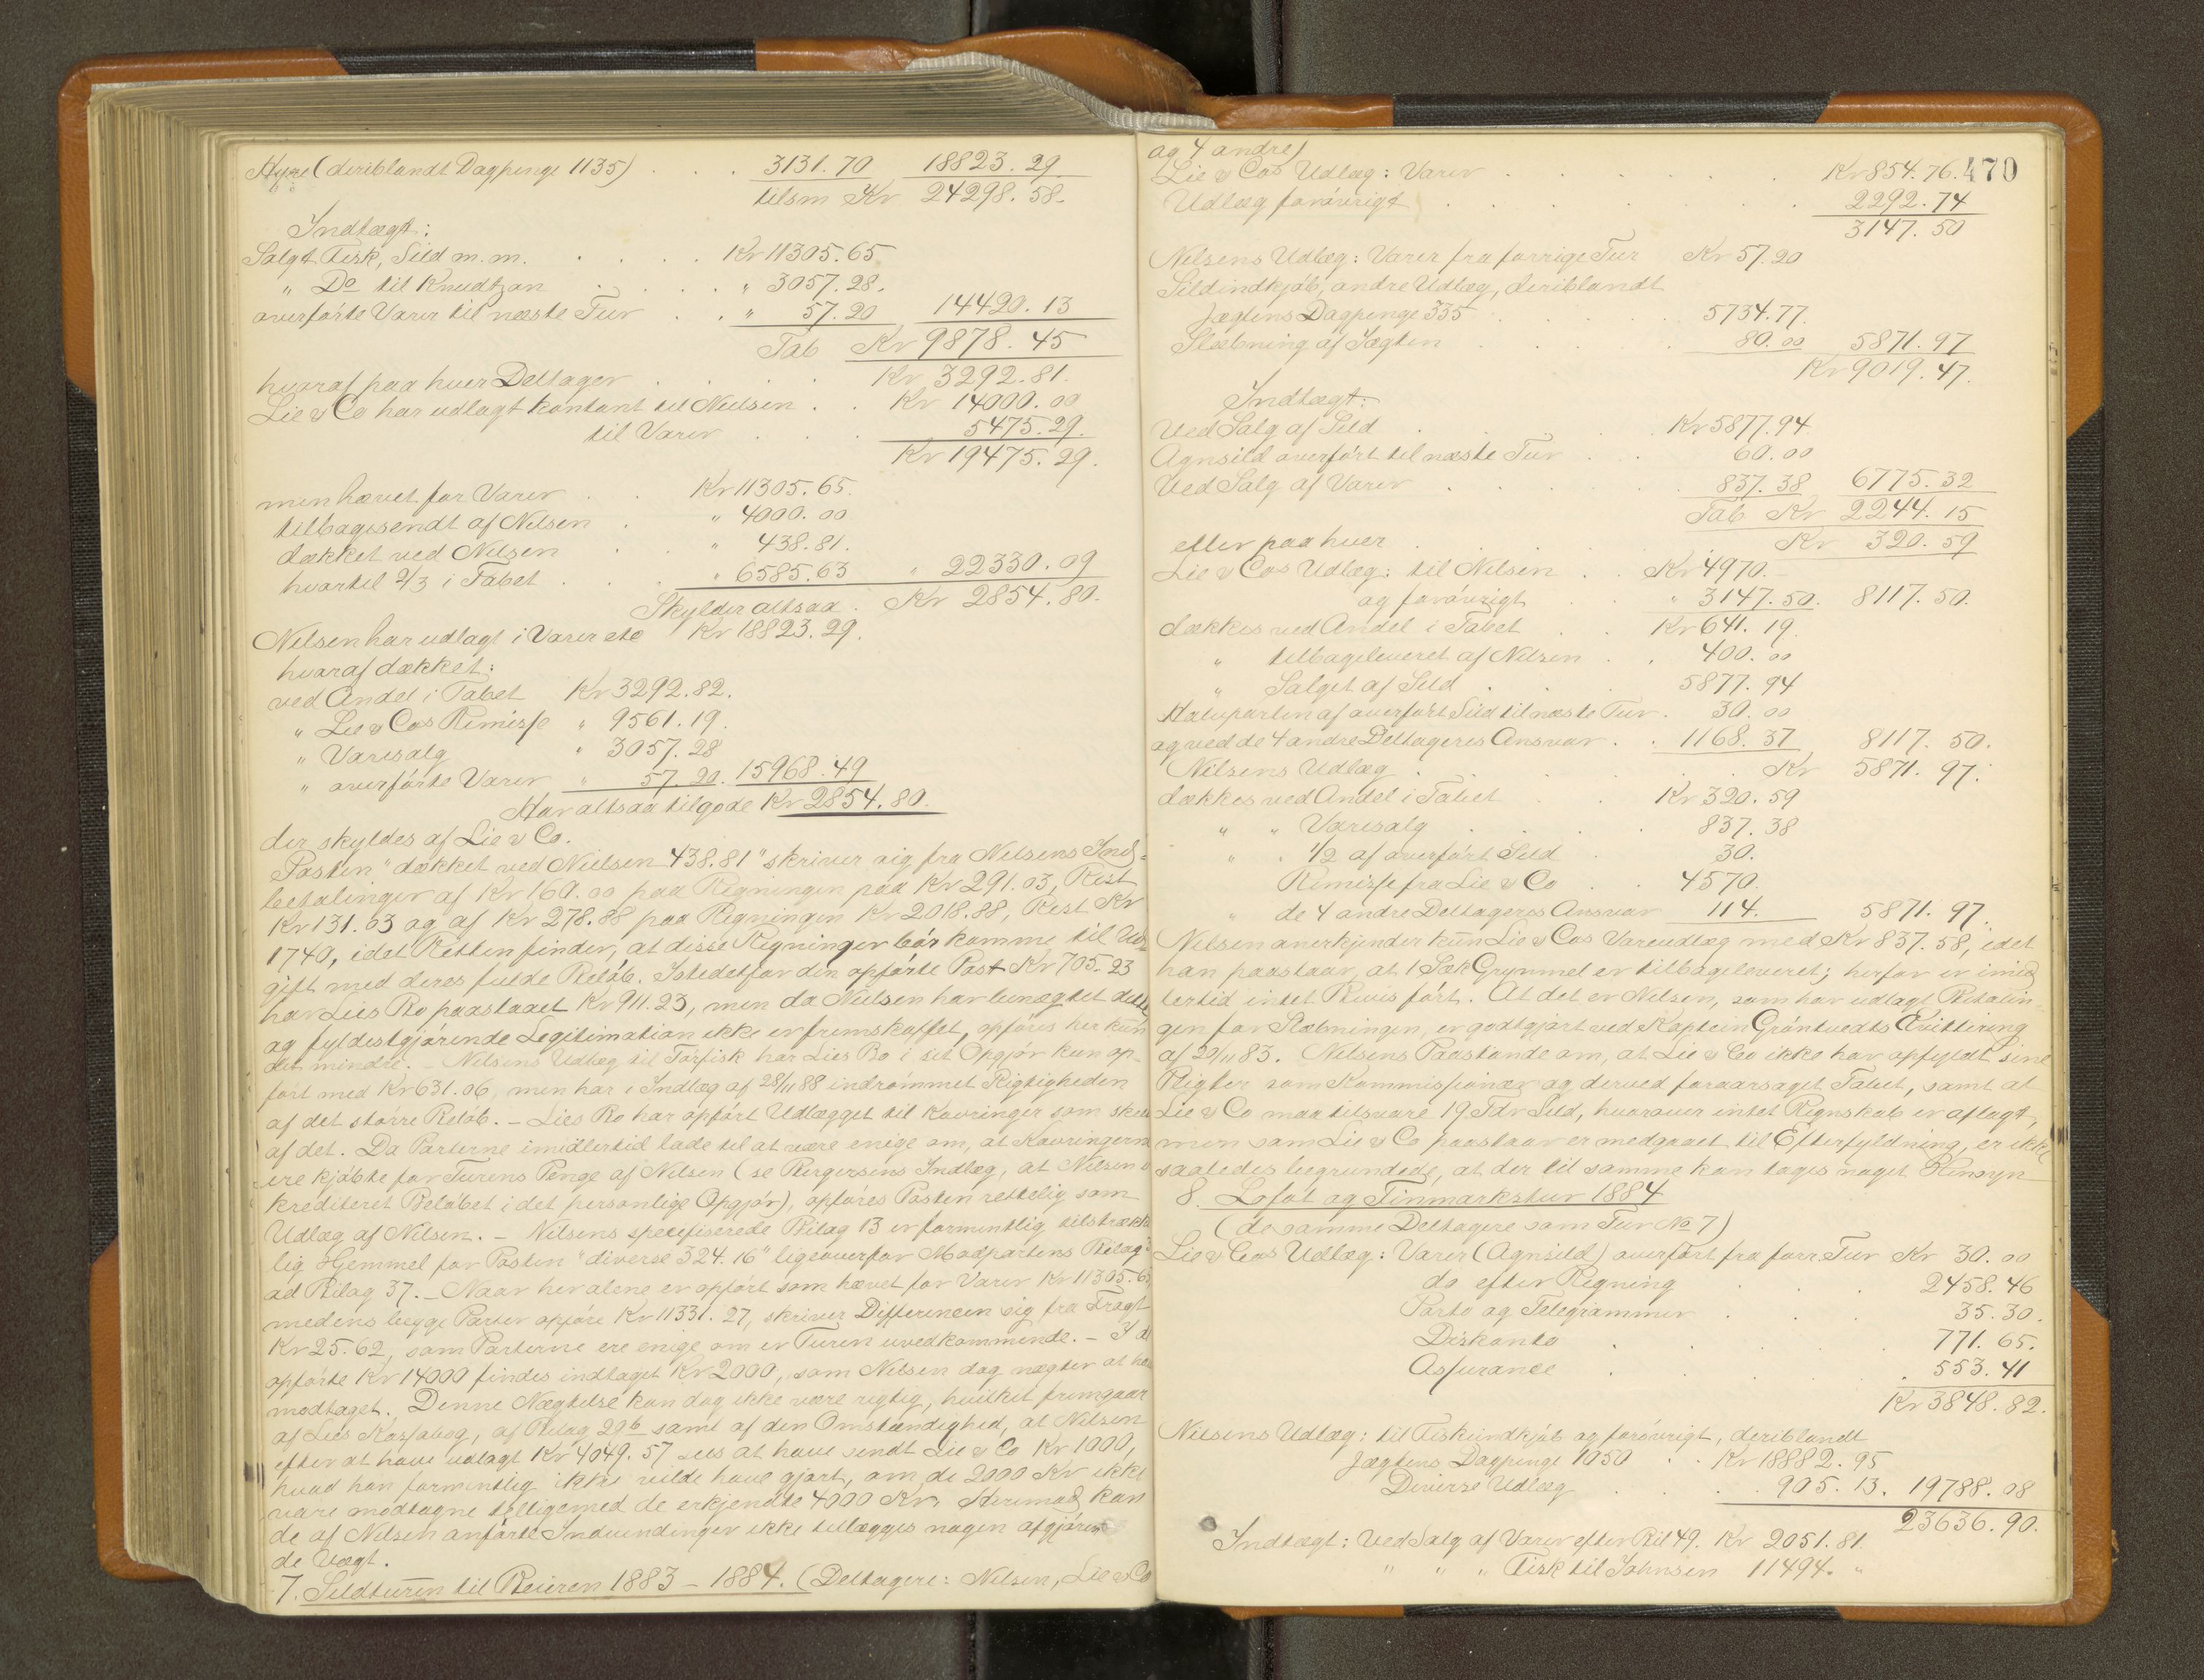 Hyre (deriblandt Dagpenge 1135) . . . 3131.70 18823.29.
tilsm Kr 24298.58.
Indtægt:
Solgt Fisk, Sild m.m. . . . . Kr 11305.65
" Do til Knudtzon . . . . " 3057.28.
overførte Varer til næste Tur . . " 57.20 14420.13
Tab Kr 9878.45
hvoraf paa hver Deltager . . . . Kr 3292.81.
Lie & Co har udlagt kontant til Nielsen . . Kr 14000.00
til Varer . . . 5475.29.
Kr 19475.29.
men hævet for Varer . . Kr 11305.65.
tilbagesendt af Nilsen . " 4000.00
dækket ved Nilsen . . " 438.81.
hvortil 2/3 i Tabet . . . " 6585.63 " 22330.09
Skylder altsaa . Kr 2854.80.
Nilsen har udlagt i Varer etc Kr 18823.29.
hvoraf dækket:
ved Andel i Tabet Kr 3292.82.
" Lie & Cos Rimisse " 9561.19.
" Varesalg " 3057.28
" overførte Varer " 57.20. 15968.49
Har altsaa tilgode Kr 2854.80.
der skyldes af Lie & Co.
Posten "dækket ved Nielsen 438.81" skriver sig fra Nilsens Ind-
betalinger af Kr 160.00 paa Regningen paa Kr 291.03, Rest
Kr 131.03 og af Kr 278.88 paa Regningen Kr 2018.88, Rest Kr
1740, idet Retten finder, at disse Regninger bør komme til Ud-
gift med deres fulde Beløb. Istedetfor den opførte Post Kr 705.23
har Lies Bo paastaaet Kr 911.23, men da Nielsen har benægtet dette
og fyldestgjørende Legitimation ikke er fremskaffet, opføres her kun
det mindre. – Nilsens Udlæg til Torfisk har Lies Bo i sit Opgjør kun op-
ført med Kr 631.06, men har i Indlæg af 28/11 88 indrømmet Rigtigheden
af det større Beløb. – Lies Bo har opført Udlægget til Kavringer som skeet
af det. Da Parterne imidlertid lade til at være enige om, at Kavringerne
ere kjøbte for Turens Penge af Nilsen (se Birgersens Indlæg, at Nilsen er
krediteret Beløbet i det personlige Opgjør), opføres Posten rettelig som
Udlæg af Nilsen. – Nilsens specifiserede Bilag 13 er formentlig tilstrække-
lig Hjemmel for Posten "diverse 324.16" ligeoverfor Modpartens Bilag
ad Bilag 37. – Naar her alene er opført som hævet for Varer Kr 11305.65
medens begge Parter opføre Kr 11331.27, skriver Differencen sig fra Fragt
Kr 25.62, som Parterne ere enige om er Turen uvedkommende. – I de
opførte Kr 14000 findes indtaget Kr 2000, som Nilsen dog nægter at have
modtaget. Denne Nægtelse kan dog ikke være rigtig, hvilket fremgaar
af Lies Kassabog, af Bilag 29b samt af den Omstændighed, at Nilsen
efter at have udlagt Kr 4049.57 sees at have sendt Lie & Co Kr 1000,
hvad han formentlig ikke vilde have gjort, om de 2000 Kr ikke
vare modtagne tilligemed de erkjendte 4000 Kr. Herimod kan
de af Nilsen anførte Indvendinger ikke tillægges nogen afgjøren-
de Vægt.
7. Sildturen til Reieren 1883 – 1884. (Deltagere: Nilsen, Lie & Co
og 4 andre)
470
Lie & Cos Udlæg: Varer . . . . . . Kr 854.76.
Udlæg forøvrigt . . . . . . . 2292.74
3147.50
Nilsens Udlæg: Varer fra forrige Tur Kr 57.20
Sildindkjøb, andre Udlæg, deriblandt
Jægtens Dagpenge 335 . . . . 5734.77.
Slæbning af Jægten . . . . 80.00 5871.97
Kr 9019.47.
Indtægt:
Ved Salg af Sild . . . . Kr 5877.94
Agnsild overført til næste Tur . . 60.00
Ved Salg af Varer . . . . . 837.38 6775.32
Tab Kr 2244.15
eller paa hver . . . . . Kr 320.59
Lie & Cos Udlæg: til Nilsen . . Kr 4970.
og forøvrigt . . " 3147.50. 8117.50.
dækkes ved Andel i Tabet . . Kr 641.19.
" tilbageleveret af Nilsen . . 400.00
" Salget af Sild . . . 5877.94
Halvparten af overført Sild til næste Tur . 30.00
og ved de 4 andre Deltageres Ansvar . . 1168.37 8117.50.
Nilsens Udlæg . . . . . Kr 5871.97.
dækkes ved Andel i Tabet . . Kr 320.59
" " Varesalg . . . . 837.38
" " 1/2 af overført Sild . 30.
Rimisse fra Lie & Co . . 4570.
" de 4 andre Deltageres Ansvar 114. 5871.97.
Nilsen anerkjender kun Lie & Cos Vareudlæg med Kr 837.58, idet
han paastaar, at 1 Sæk Grynmel er tilbageleveret; herfor er imid-
lertid intet Bevis ført. At det er Nilsen, som har udlagt Betalin-
gen for Slæbningen, er godtgjort ved Kaptein Gröntvedts Kvittering
af 29/11 83. Nilsens Paastande om, at Lie & Co ikke har opfyldt sine
Pligter som Kommissionær og derved foraarsaget Tabet, samt at
Lie & Co maa tilsvare 19 Tdr Sild, hvorover intet Regnskab er aflagt,
men som Lie & Co paastaar er medgaaet til Efterfyldning, er ikke
saaledes begrundede, at der til samme kan tages noget Hensyn
8. Lofot og Finmarkstur 1884
(de samme Deltagere som Tur No 7)
Lie & Cos Udlæg: Varer (Agnsild) overført fra forr. Tur Kr 30.00
do efter Regning . . . 2458.46
Porto og Telegrammer . . . 35.30.
Diskonto . . . . 771.65.
Assurance . . . . 553.41
Kr 3848.82.
Nilsens Udlæg: til Fiskeindkjøb og forøvrigt, deriblandt
Jægtens Dagpenge 1050 . . Kr 18882.95
Diverse Udlæg . . . 905.13. 19788.08
23636.90.
Indtægt: Ved Salg af Varer efter Bil 49. Kr 2051.81.
" " " Fisk til Johnsen 11494. "